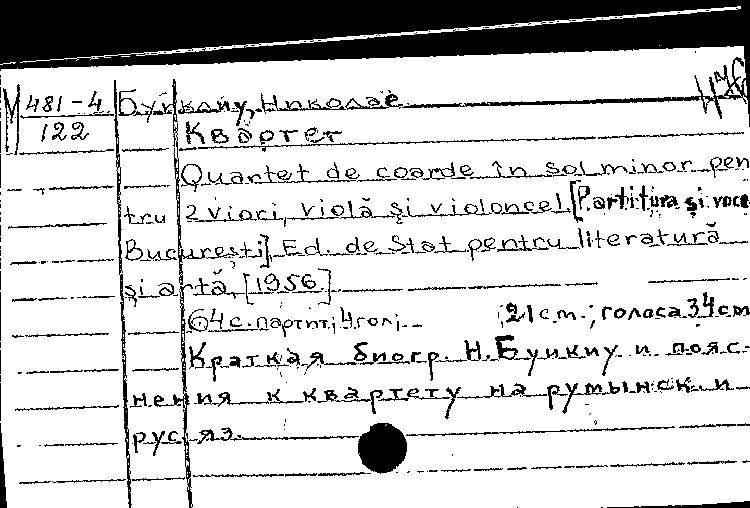 М 481-4 Буйклиу, Николае 476
122 Квартет
Quartet de coarde în sol minor pen
tru 2 viori, violă şi violoncel. [Partitura şi voce
Bucureşti], Ed. de Stat pentru literatură
şi artă, [1956].
64 с. партит; 4 гол; 21 см.; голоса 34 см
Краткая биогр. Н. и пояс-
нения к квартету на румынск. и
рус. яз.